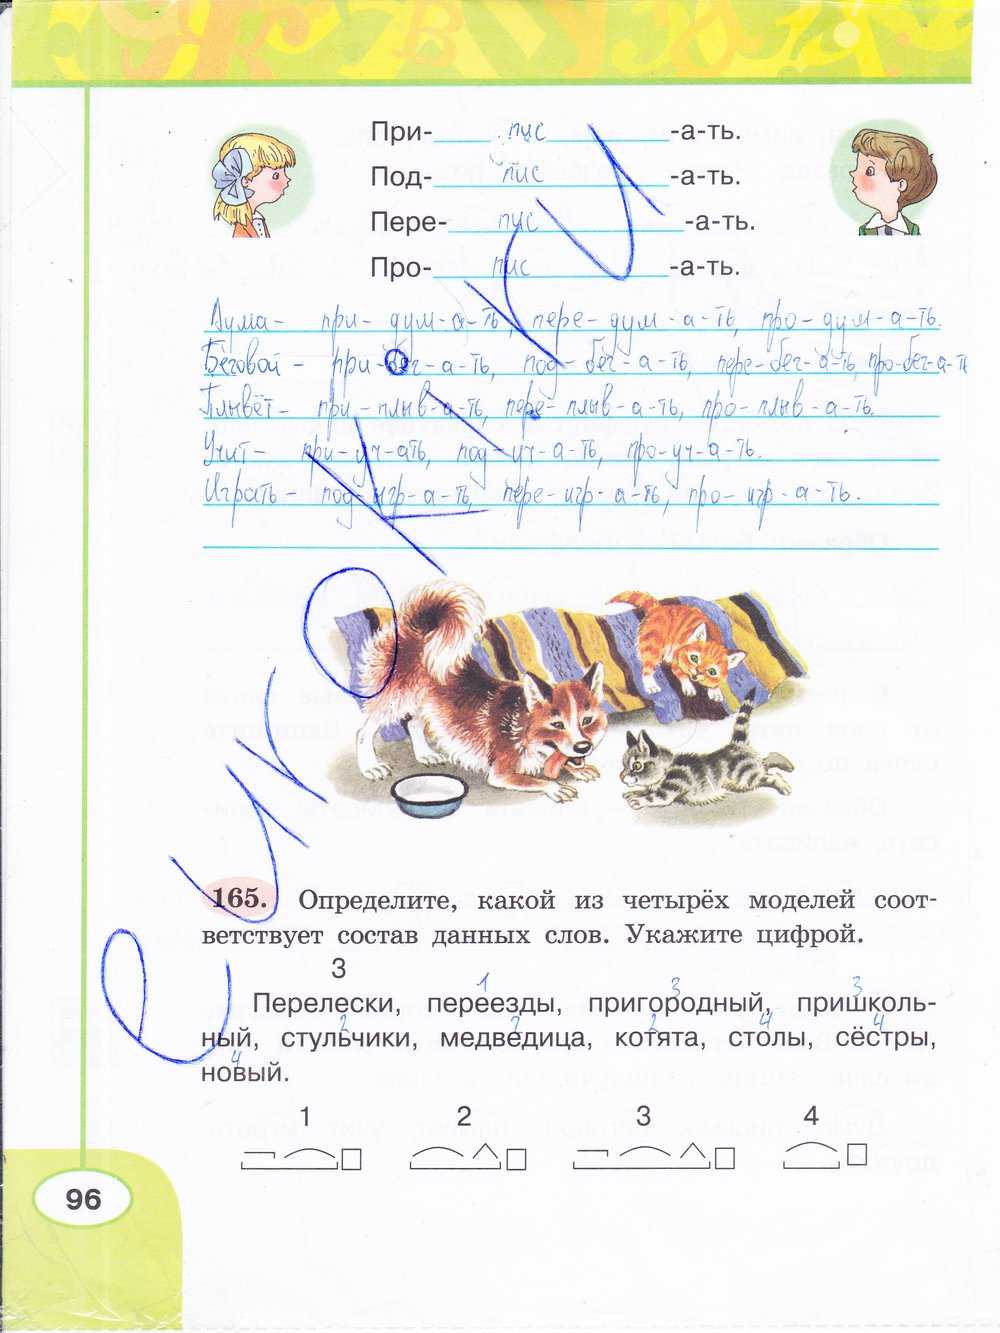 При- пис -а-ть.
Под- пис -а-ть.
Пере- пис -а-ть.
Про- пис -а-ть.
Дума- при- дум-а-ть, пере-дум-а-ть, про-дум-а-ть.
Беговой- при-бег-а-ть, под-бег-а-ть, пере-бег-а-ть, про-бег-а-ть
Плывёт- при-плыв-а-ть, пере-плыв-а-ть, про-плыв-а-ть.
Учит- при-уч-ать, под-уч-а-ть, про-уч-а-ть.
Играть- под-игр-а-ть, пере-игр-а-ть, про-игр-а-ть.
165. Определите, какой из четырёх моделей соот-
ветствует состав данных слов. Укажите цифрой.
3 1 3 3
Перелески, переезды, пригородный, пришколь-
2 2 2 4 4
ный, стульчики, медведица, котята, столы, сёстры,
4
новый.
1 2 3 4
96